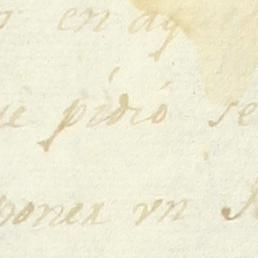 en aq
e pidió se
poner vn